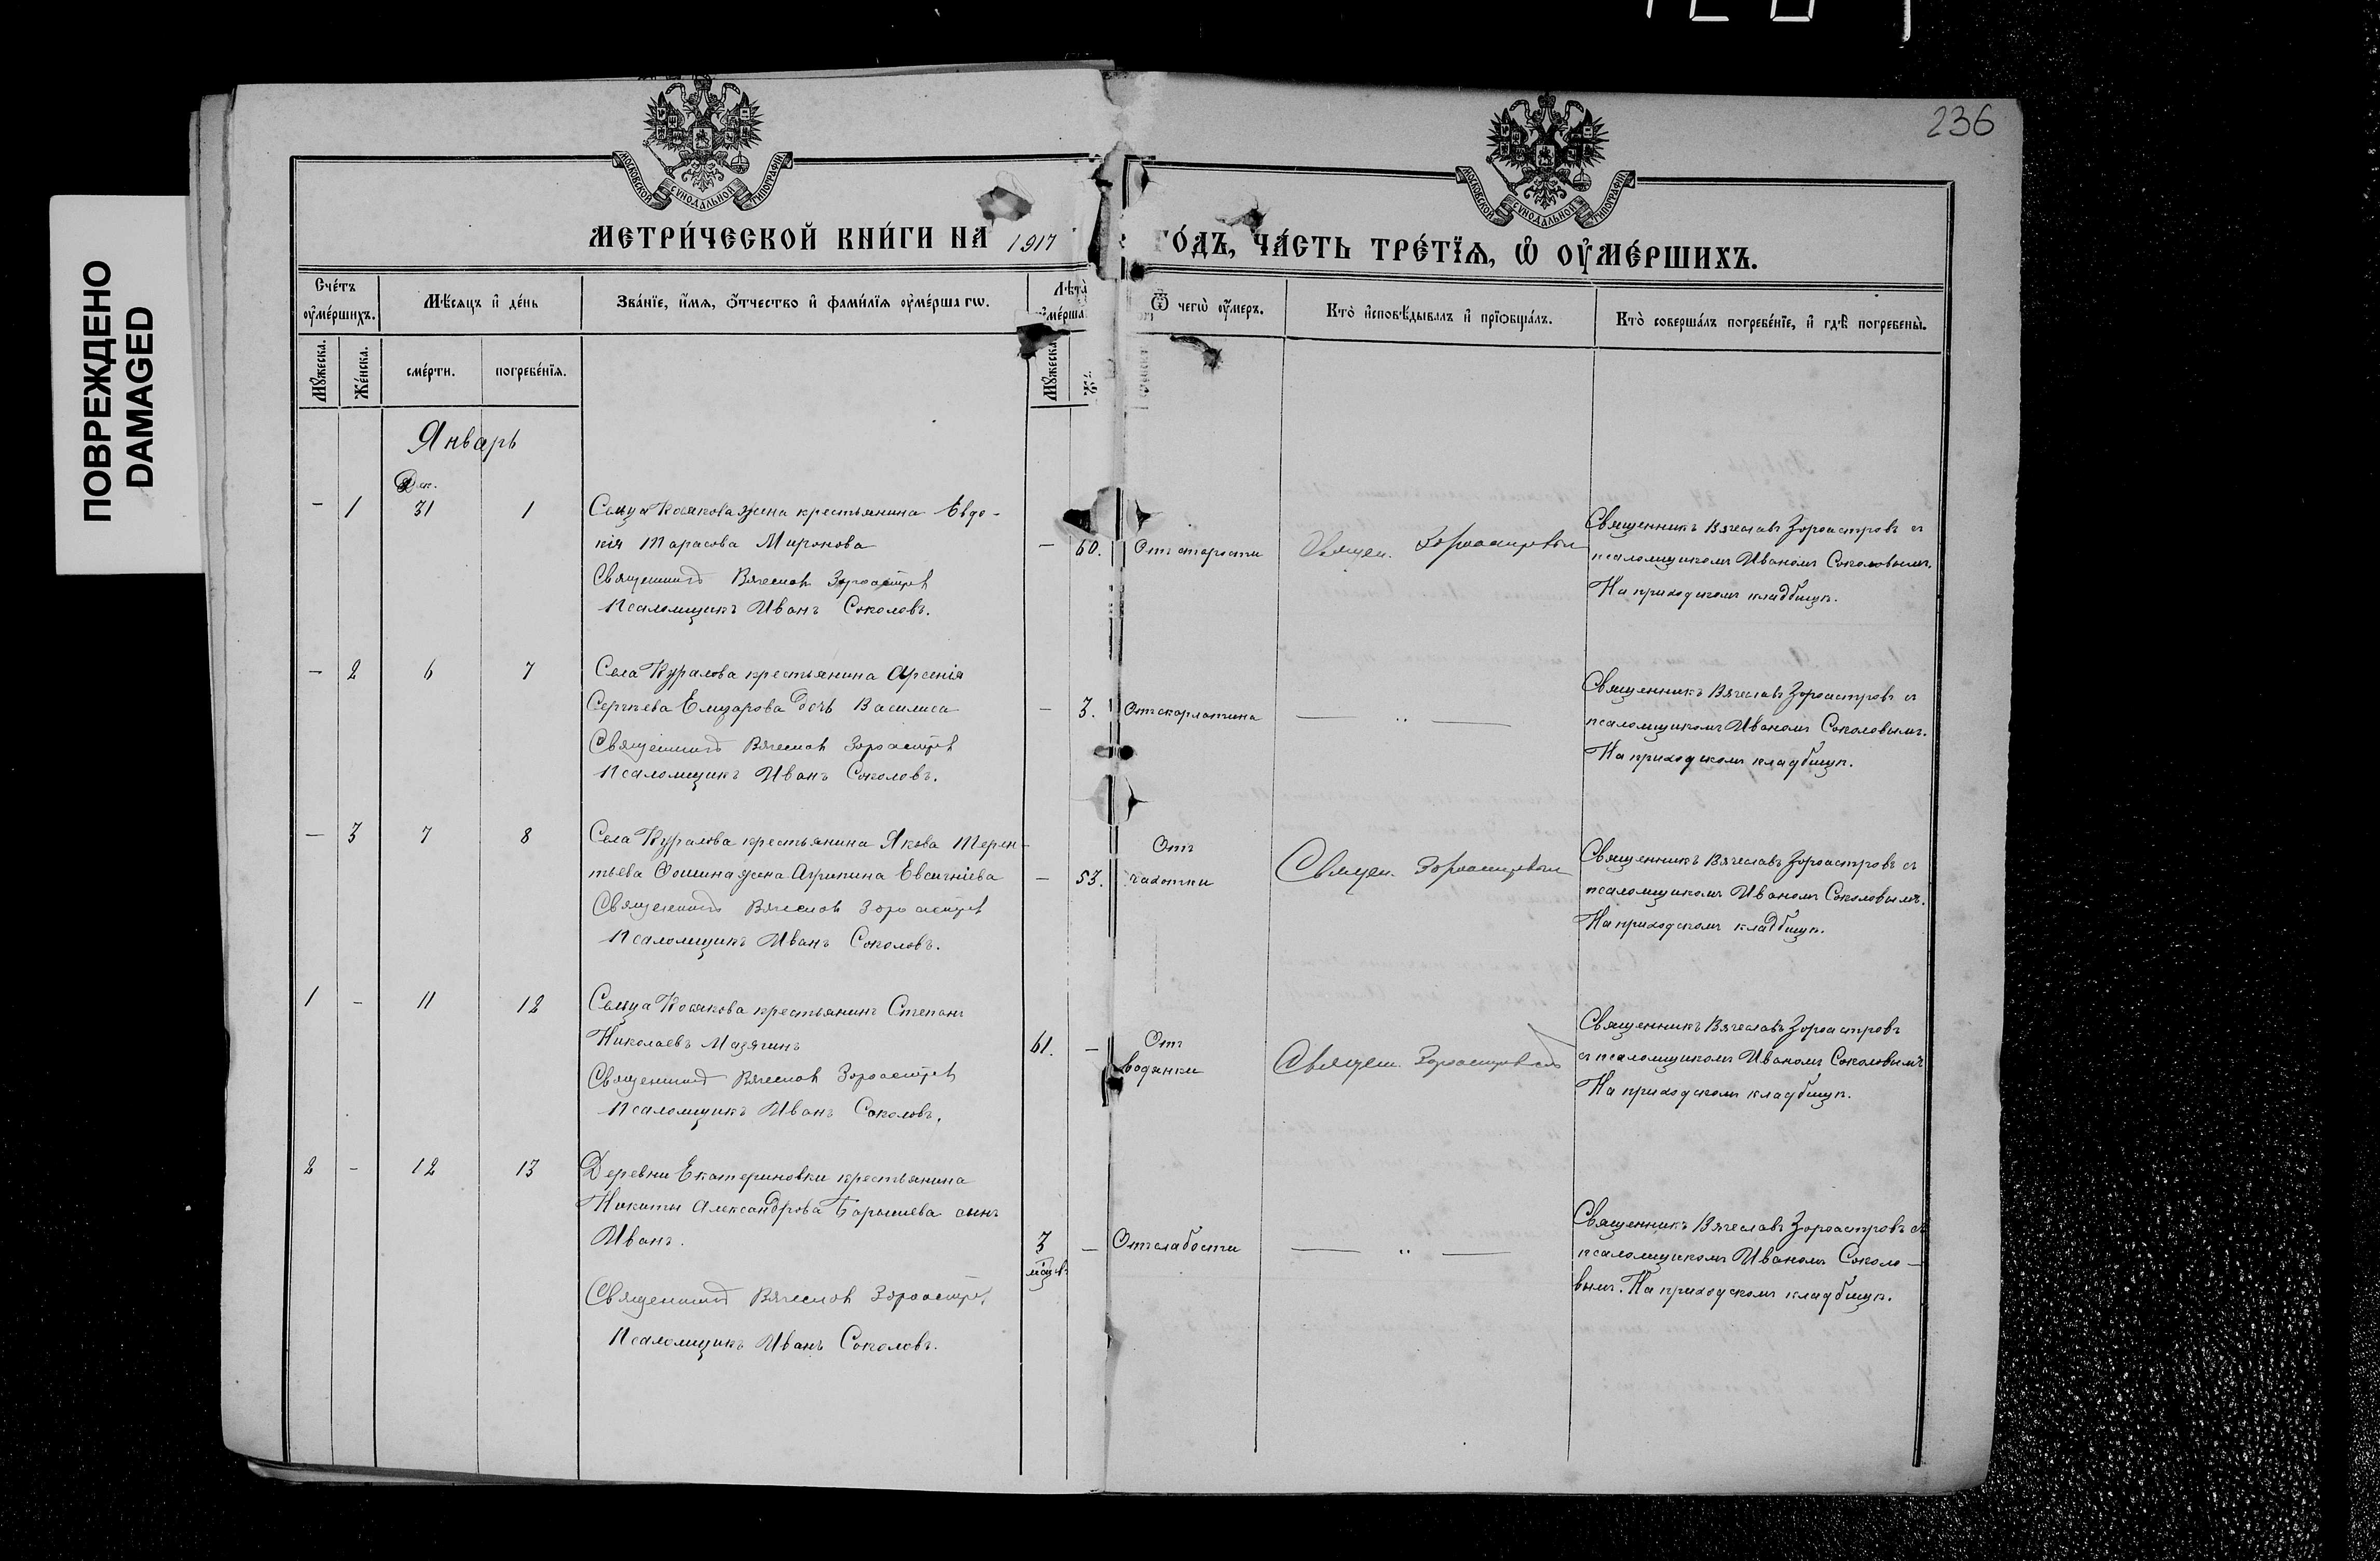 236
ПОВРЕЖДЕНО
DAMAGED
МОСКОВСКОЙ СѴНОДАЛЬНОЙ ТИПОГРАФІИ
МОСКОВСКОЙ СѴНОДАЛЬНОЙ ТИПОГРАФІИ
МЕТРИ́ЧЕСКОЙ КНИ́ГИ НА 1917 ГО́ДЪ, ЧА́СТЬ ТРЕ́ТЇѦ, Ѡ҆ ОУ҆МЕ́РШИХЪ.
Сче́тъ оу҆ме́ршихъ.
Мѣ́сяцъ и҆ де́нь
Зва́нїе, и҆́мя, ѻ҆́тчество и҆ фами́лїя оу҆ме́ршагω.
Лѣта̀
Ѿ чегѡ̀ оу҆́меръ.
Кто̀ и҆сповѣ́дывалъ и҆ прїѡбща́лъ.
Кто̀ соверша́лъ погребе́нїе, и҆ гдѣ̀ погребены̀.
Мꙋ́жеска.
Же́нска.
сме́рти.
погребе́нїя.
Мꙋ́жеска
Январь
Дек.
— 1 31 1
Сельца Косякова жена крестьянина Евдо-
кія Тарасова Миронова
Священникъ Вячеслав Зороастров
Псаломщикъ Иванъ Соколовъ.
— 60. Отъ старости
Священ. Зороастровым
Священникъ Вячеславъ Зороастровъ съ
псаломщикомъ Иваномъ Соколовымъ.
На приходскомъ кладбищѣ.
— 2 6 7
Села Куралова крестьянина Арсенія
Сергѣева Елизарова дочь Василиса
Священникъ Вячеслав Зороастров
Псаломщикъ Иванъ Соколовъ.
— 3. Отъ скарлатина
— „ —
Священникъ Вячеславъ Зороастровъ съ
псаломщикомъ Иваномъ Соколовымъ.
На приходскомъ кладбищѣ.
— 3 7 8
Села Куралова крестьянина Якова Терен-
тьева Фомина жена Агрипина Евсигніева
Священникъ Вячеслав Зороастров
Псаломщикъ Иванъ Соколовъ.
— 53.
Отъ
чахотки
Священ. Зороастровым
Священникъ Вячеславъ Зороастровъ съ
псаломщикомъ Иваномъ Соколовымъ.
На приходскомъ кладбищѣ.
1 — 11 12
Сельца Косякова крестьянинъ Степанъ
Николаевъ Мазягинъ
Священникъ Вячеслав Зороастров
Псаломщикъ Иванъ Соколовъ.
61. —
Отъ
водянки
Священ. Зороастровым
Священникъ Вячеславъ Зороастровъ
съ псаломщикомъ Иваномъ Соколовымъ
На приходскомъ кладбищѣ.
2 — 12 13
Деревни Екатериновки крестьянина
Никиты Александрова Барышева сынъ
Иванъ.
Священникъ Вячеслав Зороастров
Псаломщикъ Иванъ Соколовъ.
3 — Отъ слабости
— „ —
Священникъ Вячеславъ Зороастровъ съ
псаломщикомъ Иваномъ Соколо-
вымъ. На приходскомъ кладбищѣ.